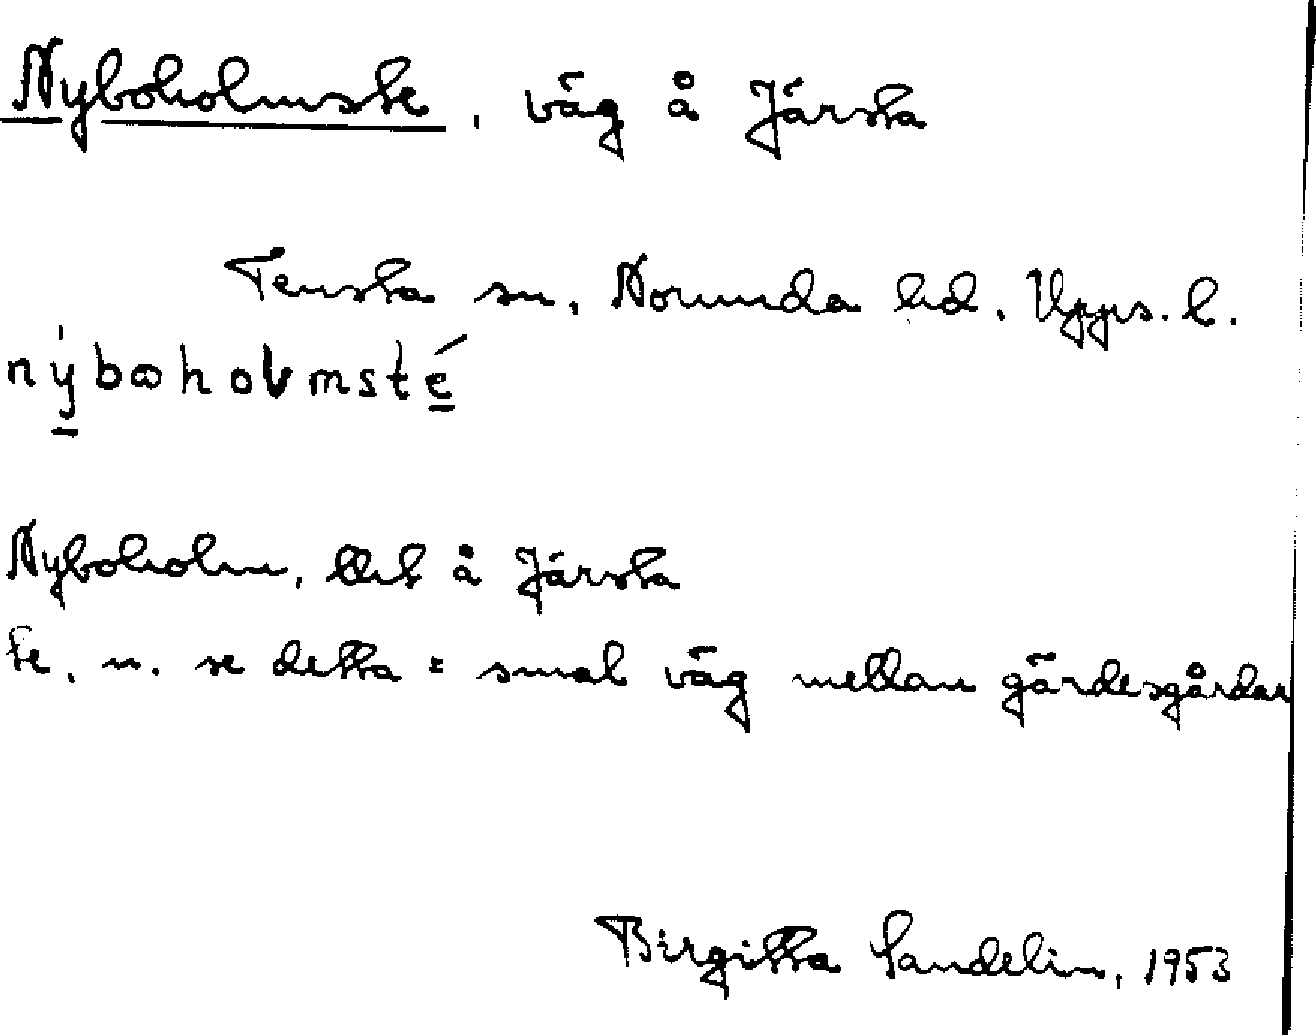 Nyboholmste, väg å Järsta
Tensta sn, Norunda hd. Upps. l.
nýboholmsté
Nyboholm, det å Järsta
te, n. se detta = smal väg mellan gärdesgårdar
Birgitta Sandelin, 1953